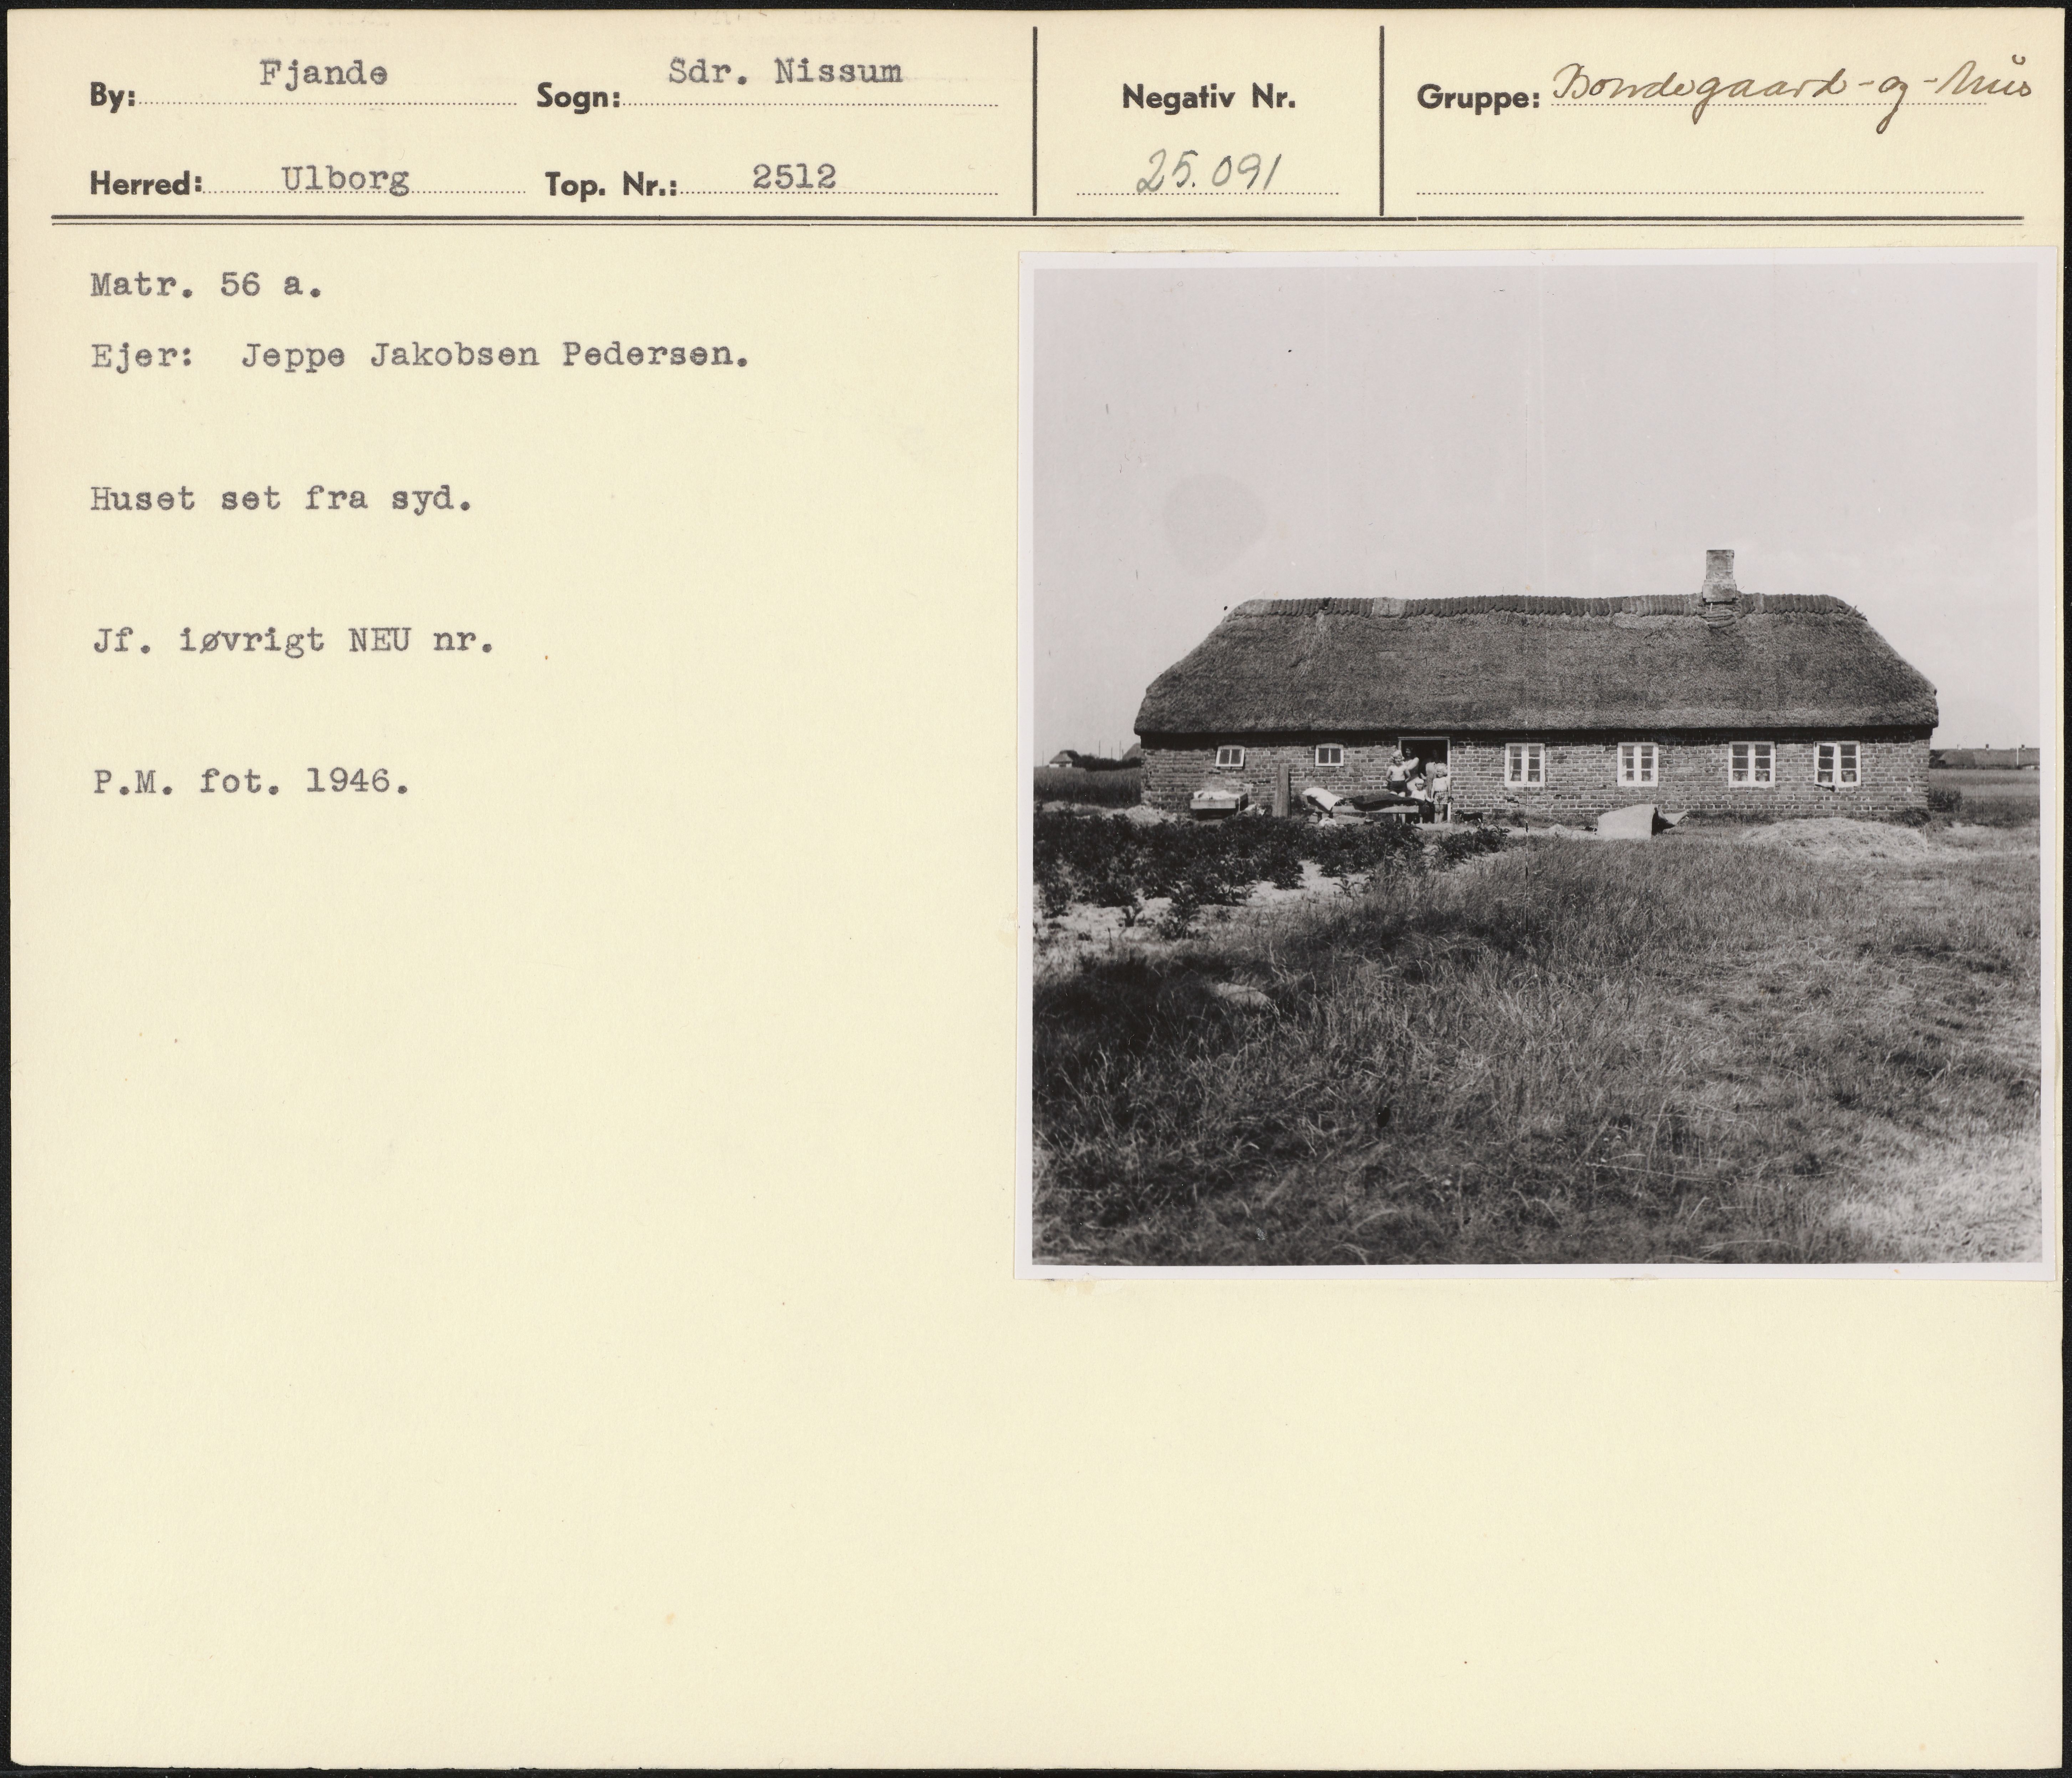 By: Fjande Sogn: Sdr. Nissum
Herred: Ulborg Top. Nr.: 2512
Negativ Nr.
25.091
Gruppe: Bondegaard-og-hus
Matr. 56 a.
Ejer: Jeppe Jakobsen Pedersen.
Huset set fra syd.
Jf. iøvrigt NEU nr.
P.M. fot. 1946.